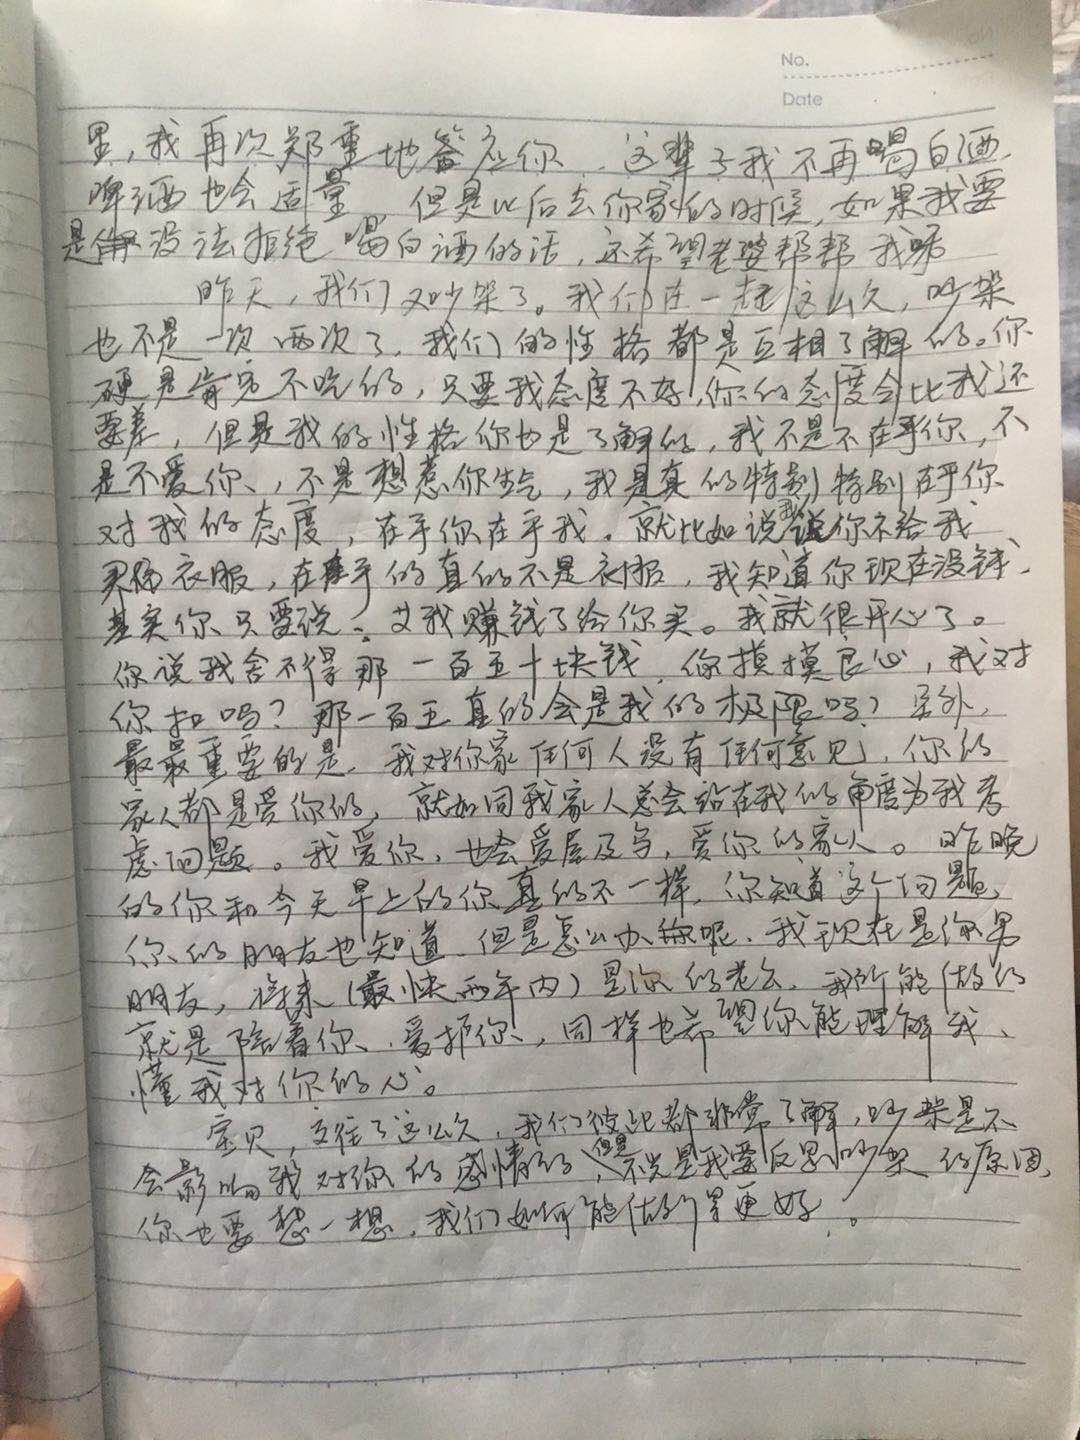 No.
Date
里,我再次郑重地答应你,这辈子我不再喝白酒,
啤酒也会适量,但是以后去你家的时候,如果我要
是没法拒绝喝白酒的话,还希望老婆帮帮我嘛
昨天,我们又吵架了。我们在一起这么久,吵架
也不是一次两次了,我们的性格都是互相了解的。你
硬是肯定不吃的,只要我态度不好,你的态度会比我还
要差,但是我的性格你也是了解的,我不是不在乎你,不
是不爱你,不是想惹你生气,我是真的特别特别在乎你
对我的态度,在乎你在乎我。就比如说我说你不给我
买衣服,在乎的真的不是衣服,我知道你现在没钱,
其实你只要说:艾我赚钱了给你买。我就很开心了。
你说我舍不得那一百五十块钱,你摸摸良心,我对
你扣吗?那一百五真的会是我的极限吗?另外,
最最重要的是,我对你家任何人没有任何意见,你的
家人都是爱你的,就如同我家人总会站在我的角度为我考
虑问题。我爱你,也会爱屋及乌,爱你的家人。昨晚
的你和今天早上的你真的不一样,你知道这个问题,
你的朋友也知道,但是怎么办呢,我现在是你男
朋友,将来(最快两年内)是你的老公,我所能做的
就是陪着你、爱护你,同样也希望你能理解我、
懂我对你的心。
宝贝,交往了这么久,我们彼此都非常了解,吵架是不
会影响我对你的感情的,但是不光是我要反思吵架的原因,
你也要想一想,我们如何能做得更好。